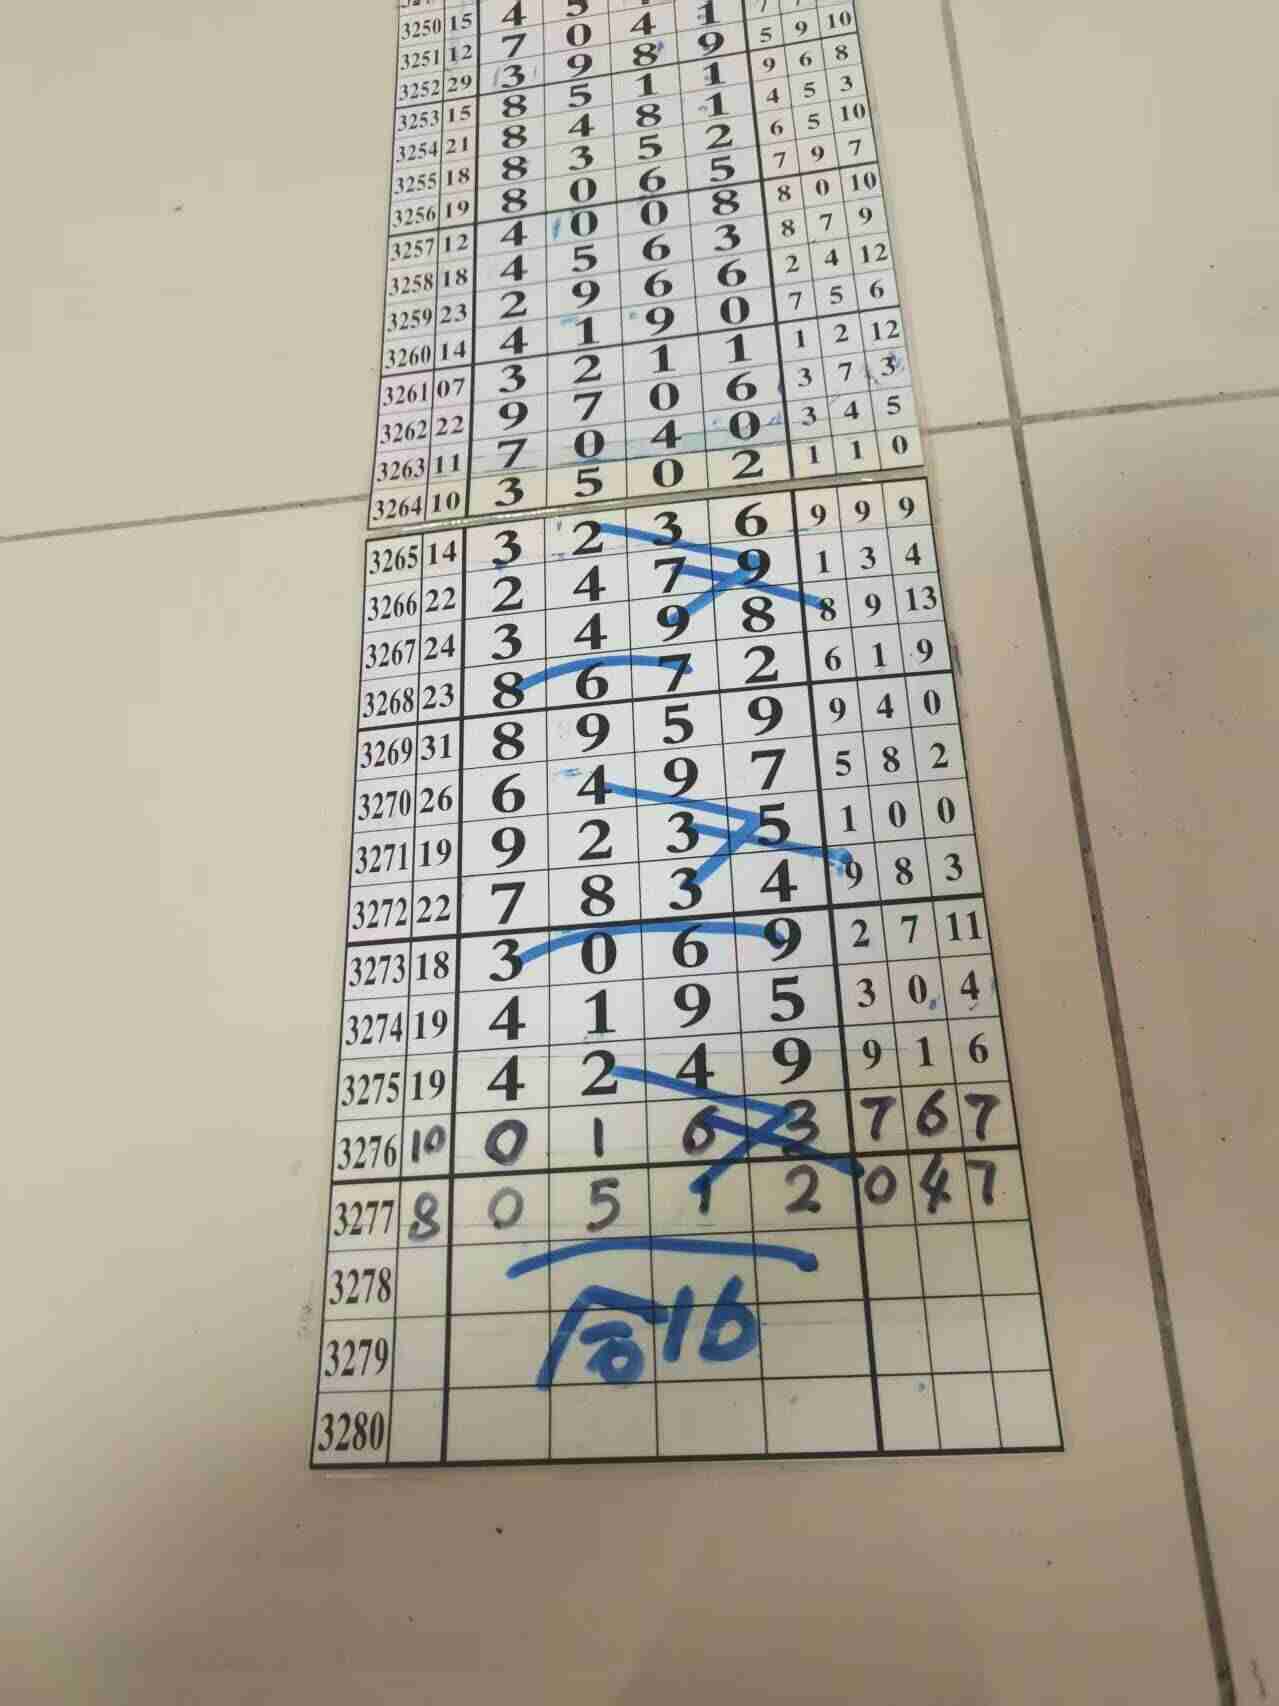 3250 15 4 5 1
3251 12 7 0 4 1 5 9 10
3252 29 3 9 8 9 9 6 8
3253 15 8 5 1 1 4 5 3
3254 21 8 4 8 1 6 5 10
3255 18 8 3 5 2 7 9 7
3256 19 8 0 6 5 8 0 10
3257 12 4 0 0 8 8 7 9
3258 18 4 5 6 3 2 4 12
3259 23 2 9 6 6 7 5 6
3260 14 4 1 9 0 1 2 12
3261 07 3 2 1 1 3 7 3
3262 22 9 7 0 6 3 4 5
3263 11 7 0 4 0 1 1 0
3264 10 3 5 0 2
3265 14 3 2 3 6 9 9 9
3266 22 2 4 7 9 1 3 4
3267 24 3 4 9 8 8 9 13
3268 23 8 6 7 2 6 1 9
3269 31 8 9 5 9 9 4 0
3270 26 6 4 9 7 5 8 2
3271 19 9 2 3 5 1 0 0
3272 22 7 8 3 4 9 8 3
3273 18 3 0 6 9 2 7 11
3274 19 4 1 9 5 3 0 4
3275 19 4 2 4 9 9 1 6
3276 10 0 1 6 3 7 6 7
3277 8 0 5 1 2 0 4 7
3278
3279 16
3280